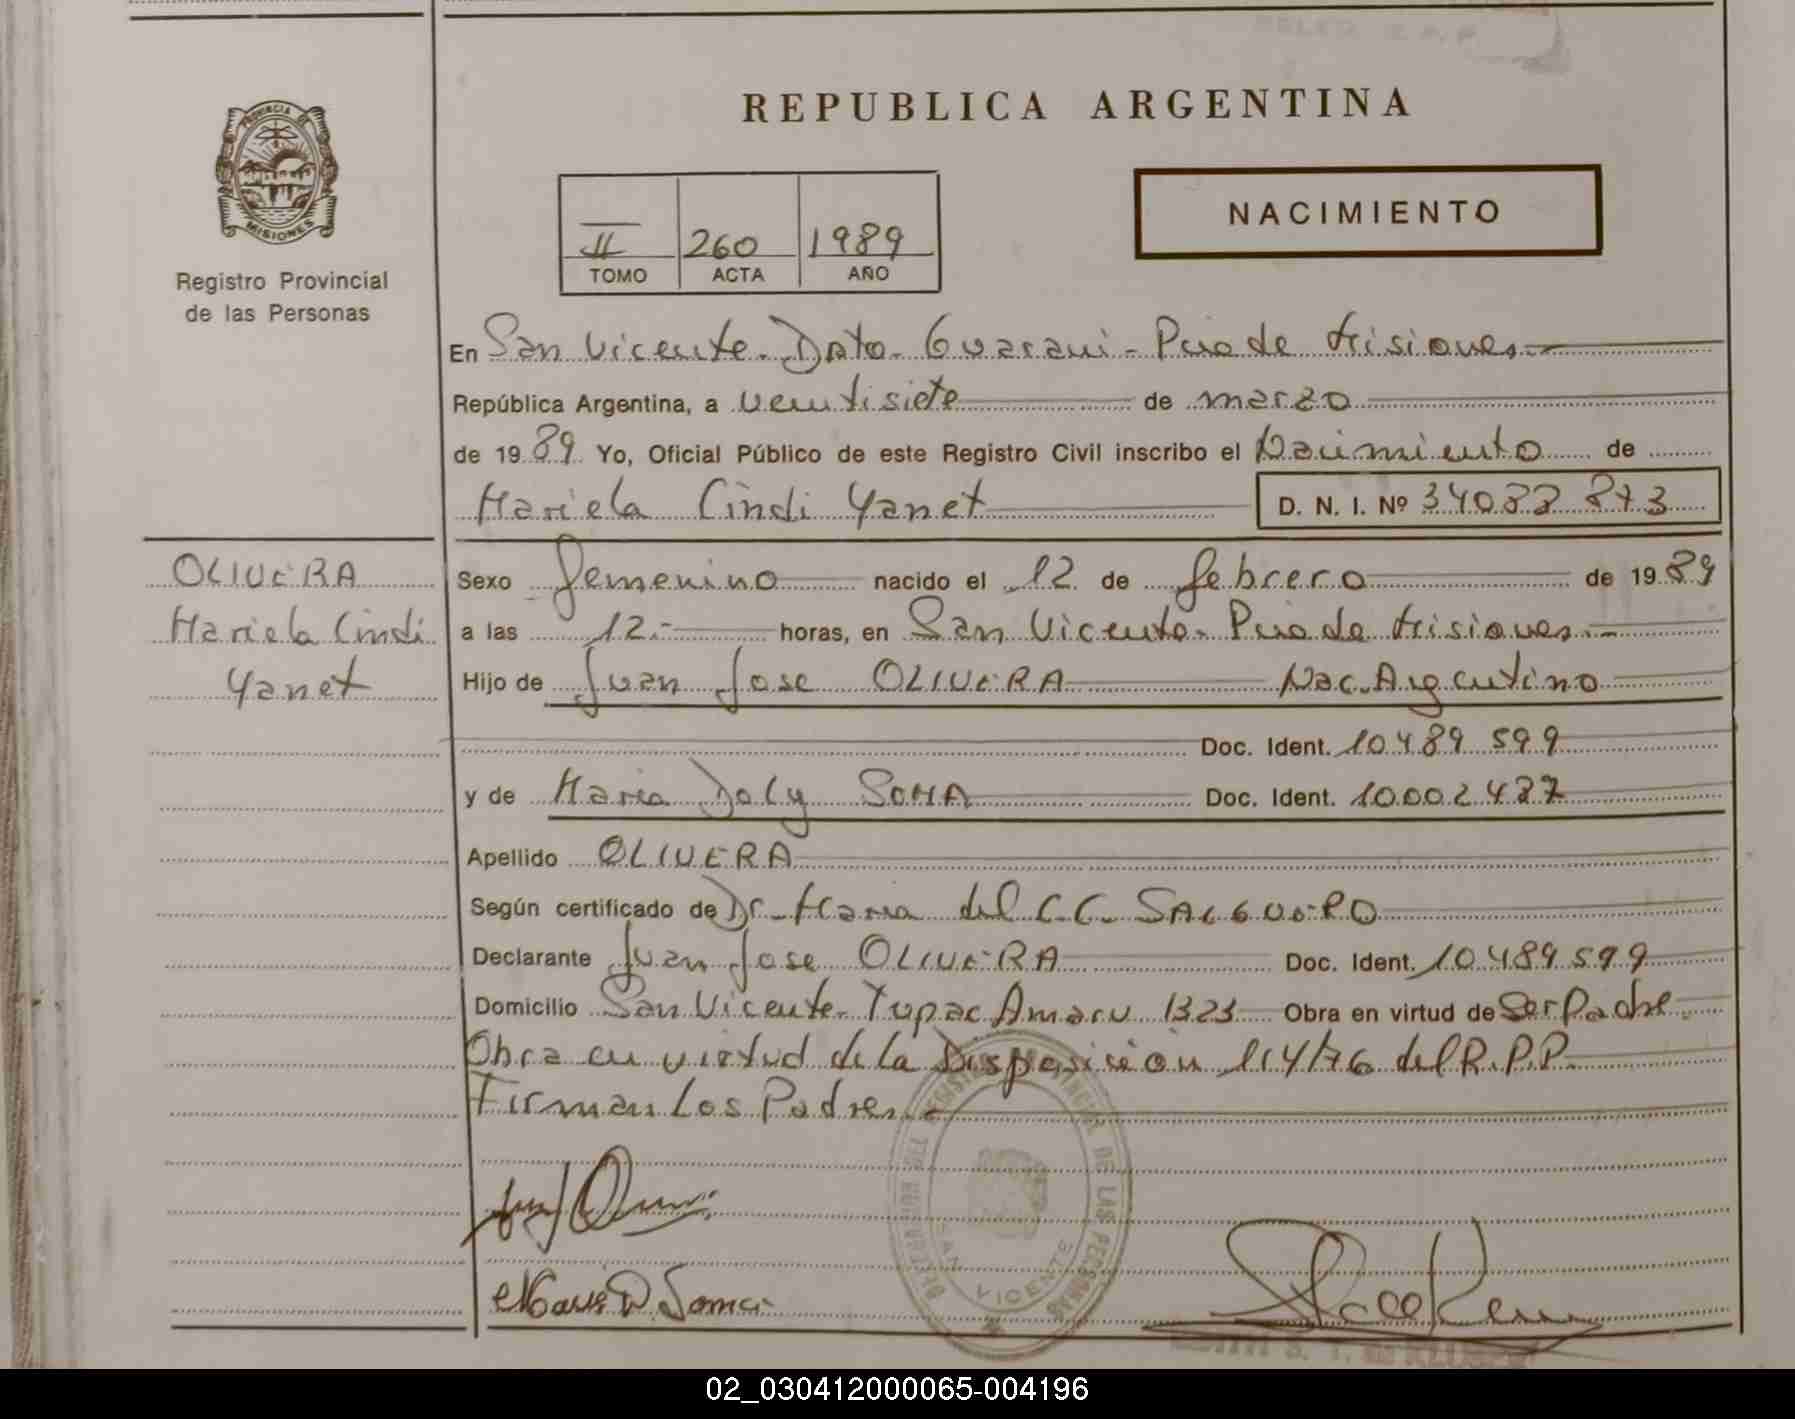 REPUBLICA ARGENTINA
PROVINCIA DE
MISIONES
Registro Provincial
de las Personas
II 260 1989
TOMO ACTA AÑO
NACIMIENTO
En San Vicente - Dpto - Guarani - Pcia de Misiones.-
República Argentina, a veintisiete de marzo
de 19 89 Yo, Oficial Público de este Registro Civil inscribo el Nacimiento de
Mariela Cindi Yanet D. N. I. Nº 34088 873
OLIVERA
Mariela Cindi
Yanet
Sexo femenino nacido el 12 de febrero de 19 89
a las 12.- horas, en San Vicente - Pcia de Misiones.-
Hijo de Juan Jose OLIVERA Nac. Argentino
Doc. Ident. 10489 599
y de Maria Doly SOMA Doc. Ident. 10002487
Apellido OLIVERA
Según certificado de Dr. Maria del C. C. SALGUERO
Declarante Juan Jose OLIVERA Doc. Ident. 10489599
Domicilio San Vicente - Tupac Amaru 1323 Obra en virtud de Ser Padre.
Obra en virtud de la Disposición 114/76 del R.P.P.
Firman Los Padres.-
Maria D. Soma
REGISTRO PROVINCIAL DE LAS PERSONAS
SAN VICENTE
02_030412000065-004196